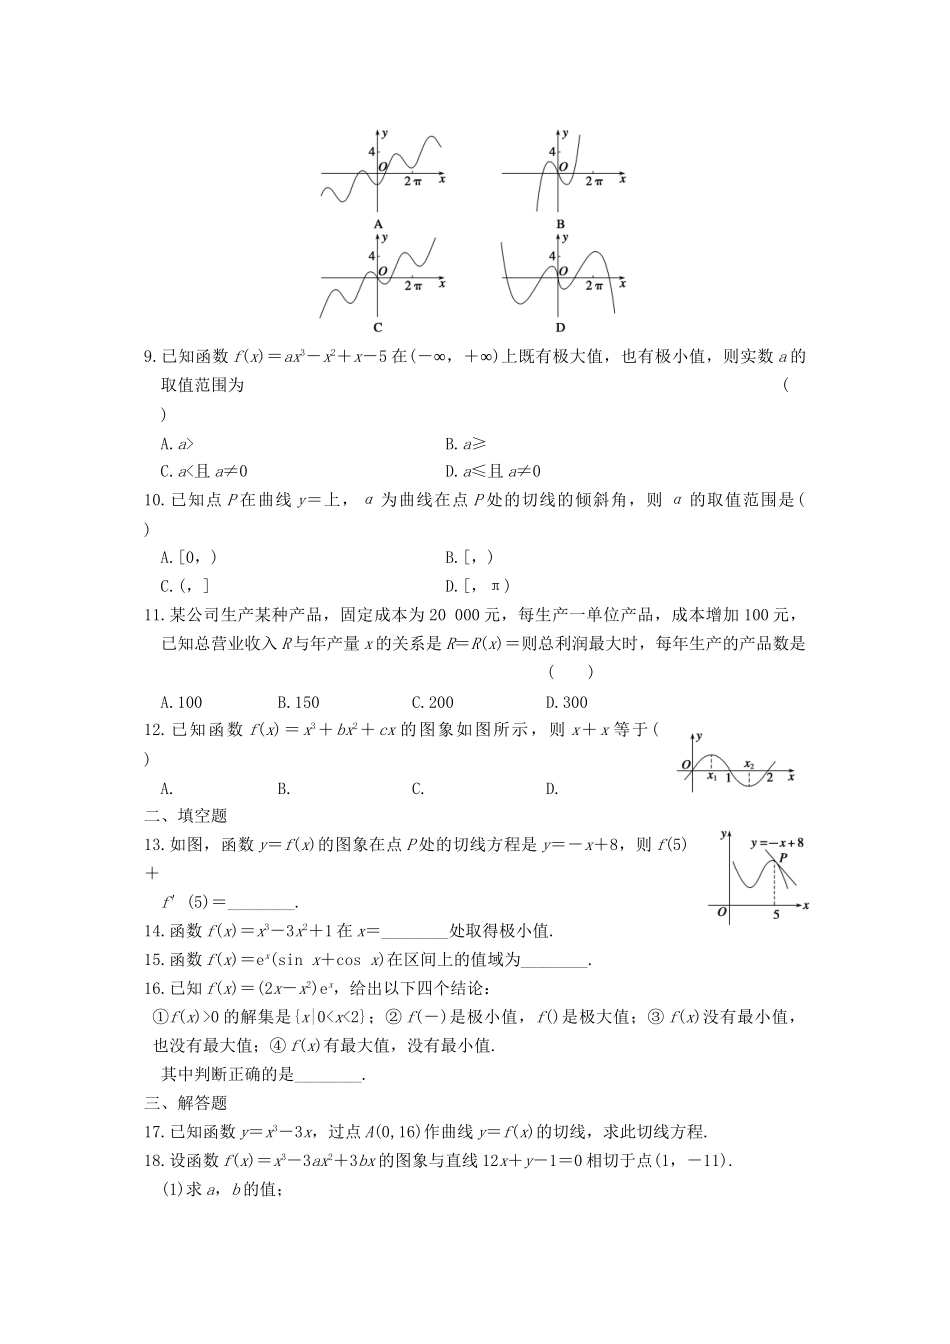 y
4
O
2π
x
A
y
4
O
2π
x
B
y
4
O
2π
x
C
y
4
O
2π
x
D
9.已知函数 f(x)＝ax³－x²＋x－5 在(－∞，＋∞)上既有极大值，也有极小值，则实数 a 的
取值范围为 (
)
A.a> B.a≥
C.a<且 a≠0 D.a≤且 a≠0
10.已知点 P 在曲线 y＝上，α 为曲线在点 P 处的切线的倾斜角，则 α 的取值范围是(
)
A.[0，) B.[，)
C.(，] D.[，π)
11.某公司生产某种产品，固定成本为 20 000 元，每生产一单位产品，成本增加 100 元，
已知总营业收入 R 与年产量 x 的关系是 R＝R(x)＝则总利润最大时，每年生产的产品数是
( )
A.100 B.150 C.200 D.300
12.已知函数 f(x)＝x³＋bx²＋cx 的图象如图所示，则 x＋x 等于(
)
A. B. C. D.
y
O
x₁
1
x₂
2
x
二、填空题
13.如图，函数 y＝f(x)的图象在点 P 处的切线方程是 y＝－x＋8，则 f(5)
＋
f′(5)＝________.
y
y=-x+8
P
O
5
x
14.函数 f(x)＝x³－3x²＋1 在 x＝________处取得极小值.
15.函数 f(x)＝eˣ(sin x＋cos x)在区间上的值域为________.
16.已知 f(x)＝(2x－x²)eˣ，给出以下四个结论：
①f(x)>0 的解集是{x|0<x<2}；② f(－)是极小值，f()是极大值；③ f(x)没有最小值，
也没有最大值；④ f(x)有最大值，没有最小值.
其中判断正确的是________.
三、解答题
17.已知函数 y＝x³－3x，过点 A(0,16)作曲线 y＝f(x)的切线，求此切线方程.
18.设函数 f(x)＝x³－3ax²＋3bx 的图象与直线 12x＋y－1＝0 相切于点(1，－11).
(1)求 a，b 的值；